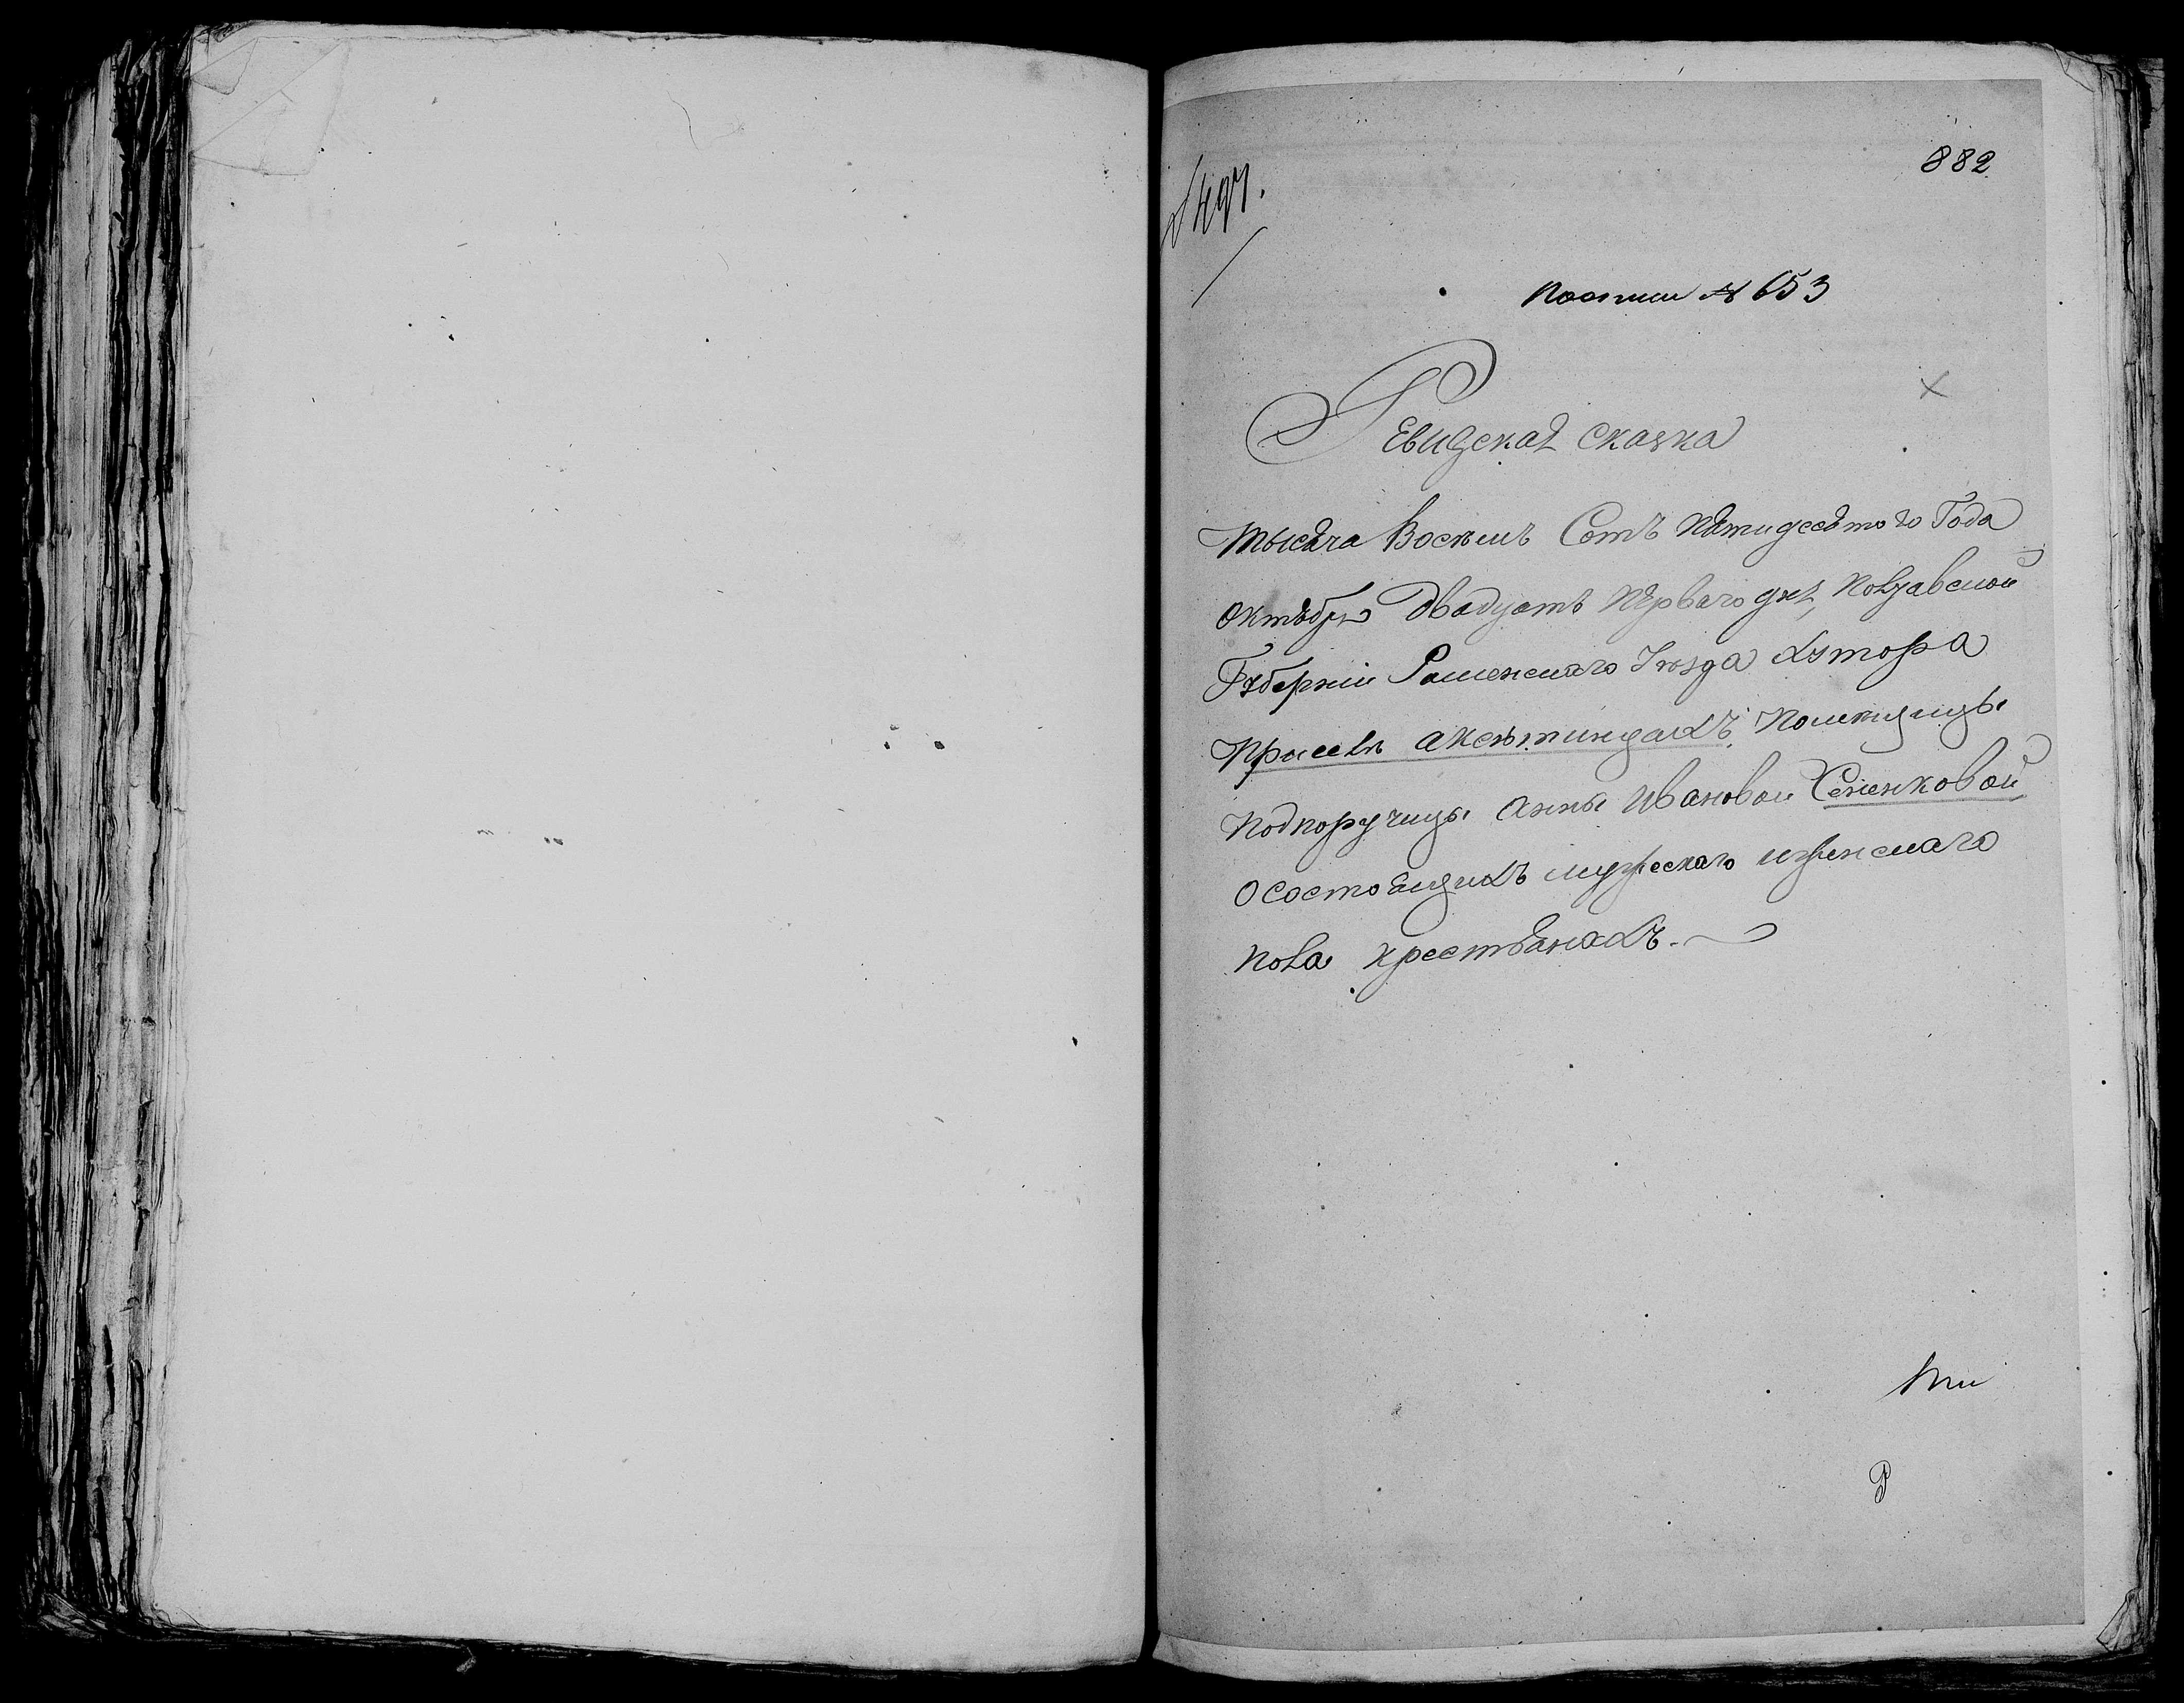 882
1497.
по описи № 653
Ревизская сказка
тысяча восемь Сотъ пятидесятого Года
октября двадцать первого дня, Полтавской
Губерніи Роменскаго Уезда хутора
при селе Аксютинцахъ помещицы
подпоручицы Анны Ивановой Сененковой
о состоящихъ мужескаго и женскаго
пола крестьянахъ.